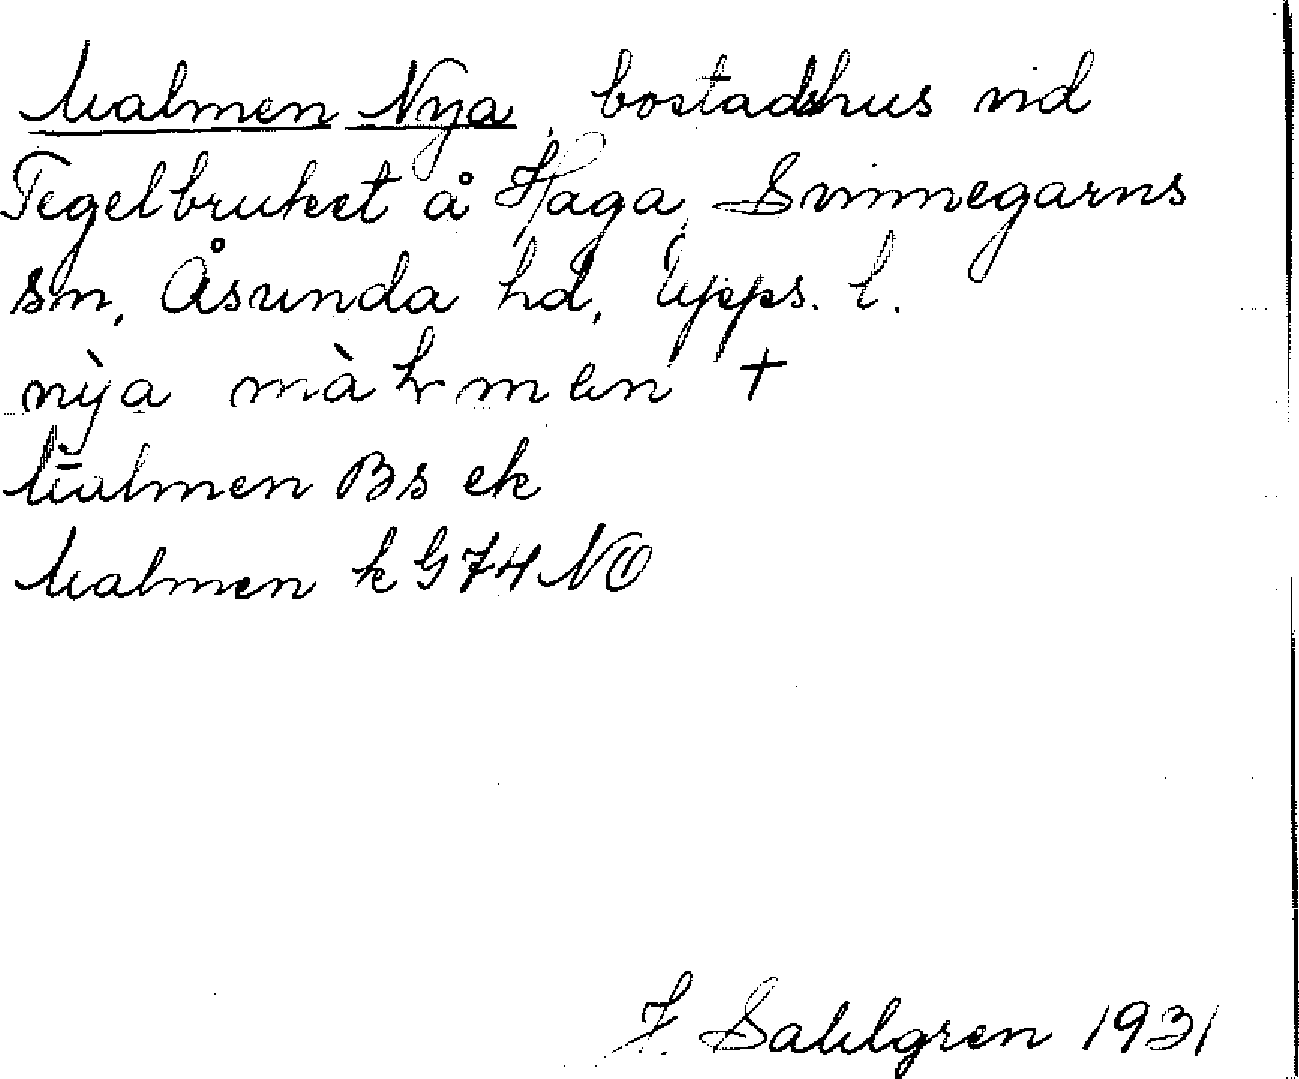 Malmen Nya, bostadshus vid
Tegelbruket å Haga, Svinnegarns
sn, Åsunda hd, Upps. l.
nỳa màłmen +
Malmen Bs ek
Malmen k G 74 NO
J. Sahlgren 1931